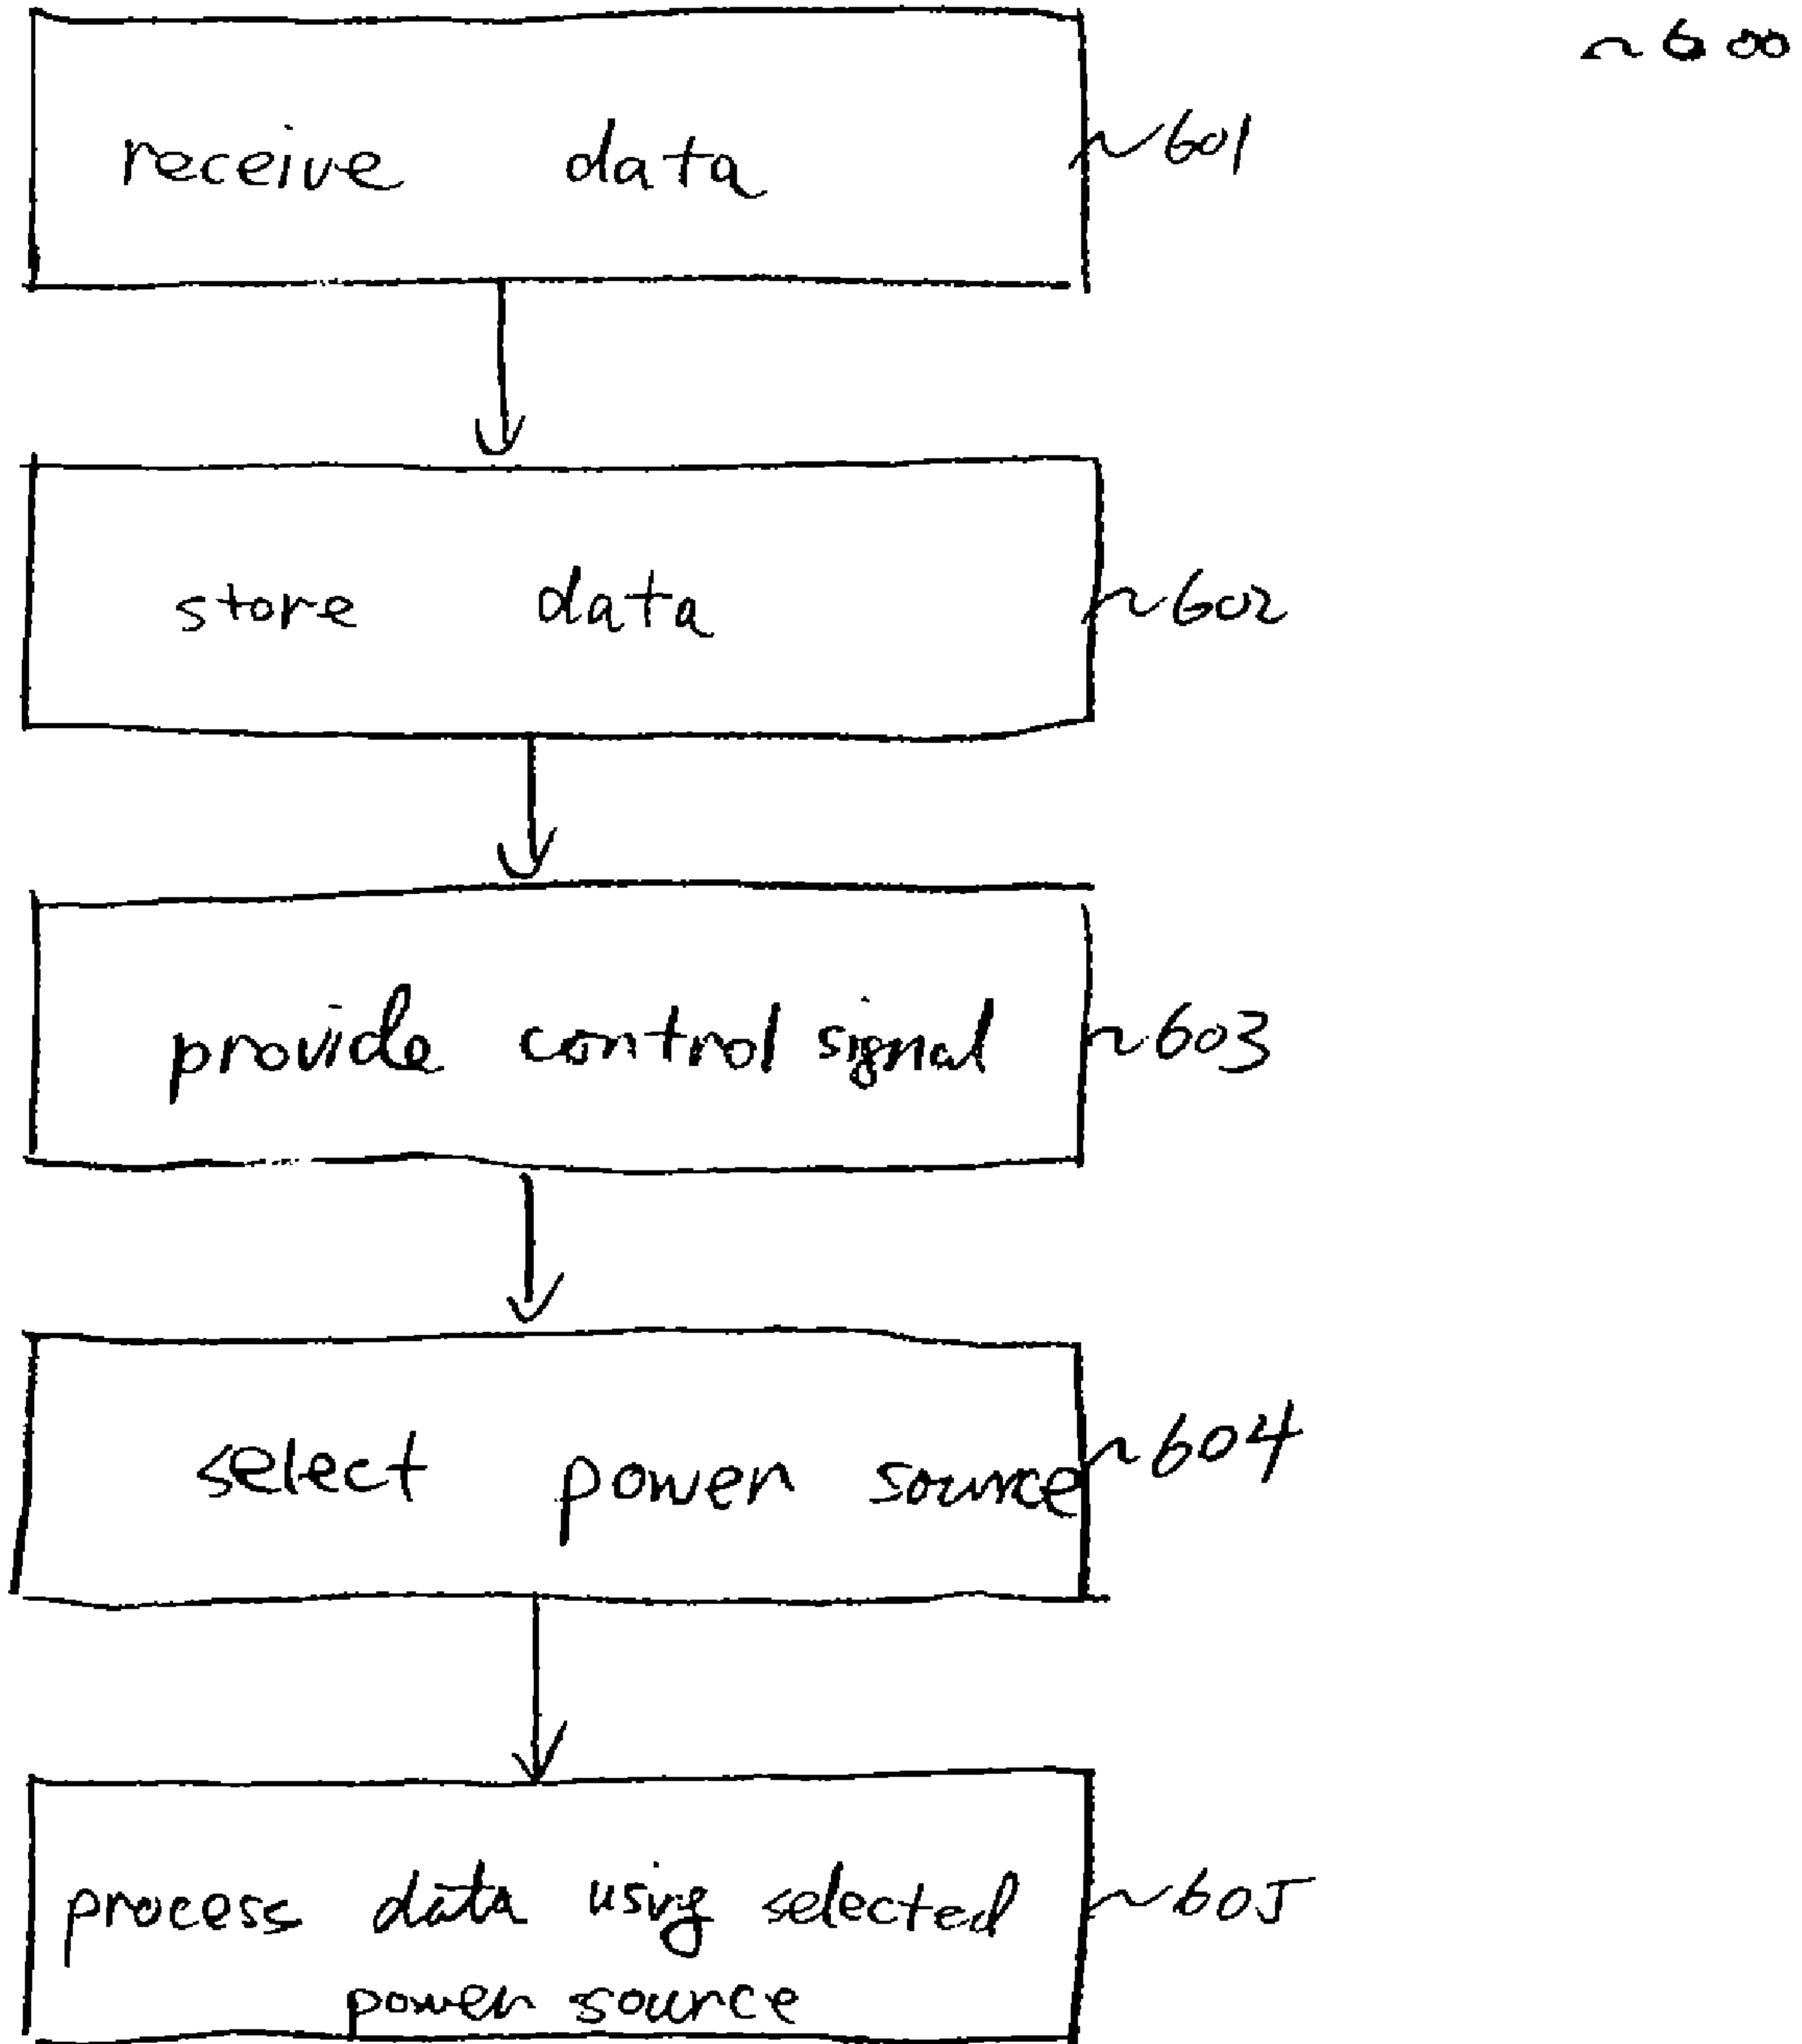 ~600
receive data ~601
store data ~602
provide control signal ~603
select power source ~604
process data using selected ~605
power source